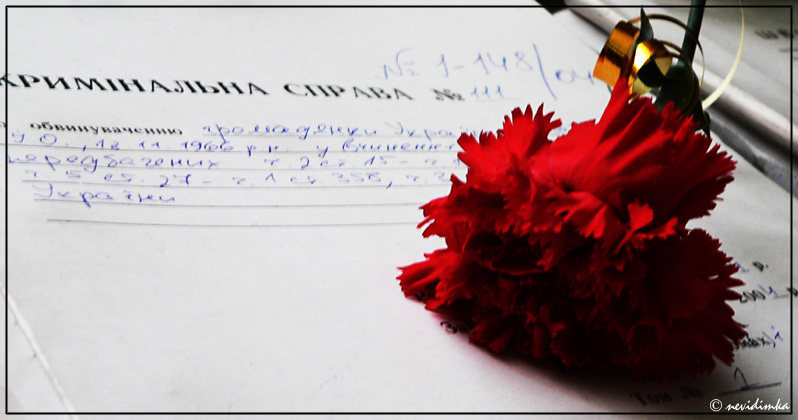 № 1-148/04
КРИМІНАЛЬНА СПРАВА № 111
обвинуваченню громадянки Украї
18.11.1966 р.н. у вчиненні
передбачених ч. 2 ст. 15 - ч.
ч. 5 ст. 27 - ч. 1 ст. 358, ч.
України
р.
2004 р
Том № 1
© nevidimka